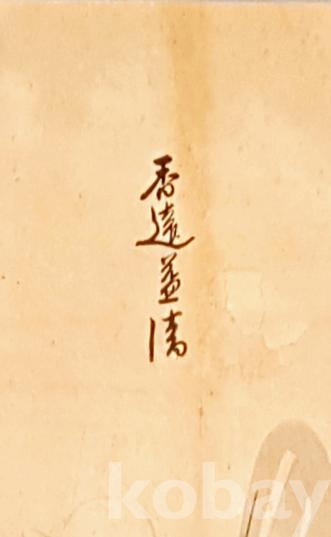 香遠益清
kobay